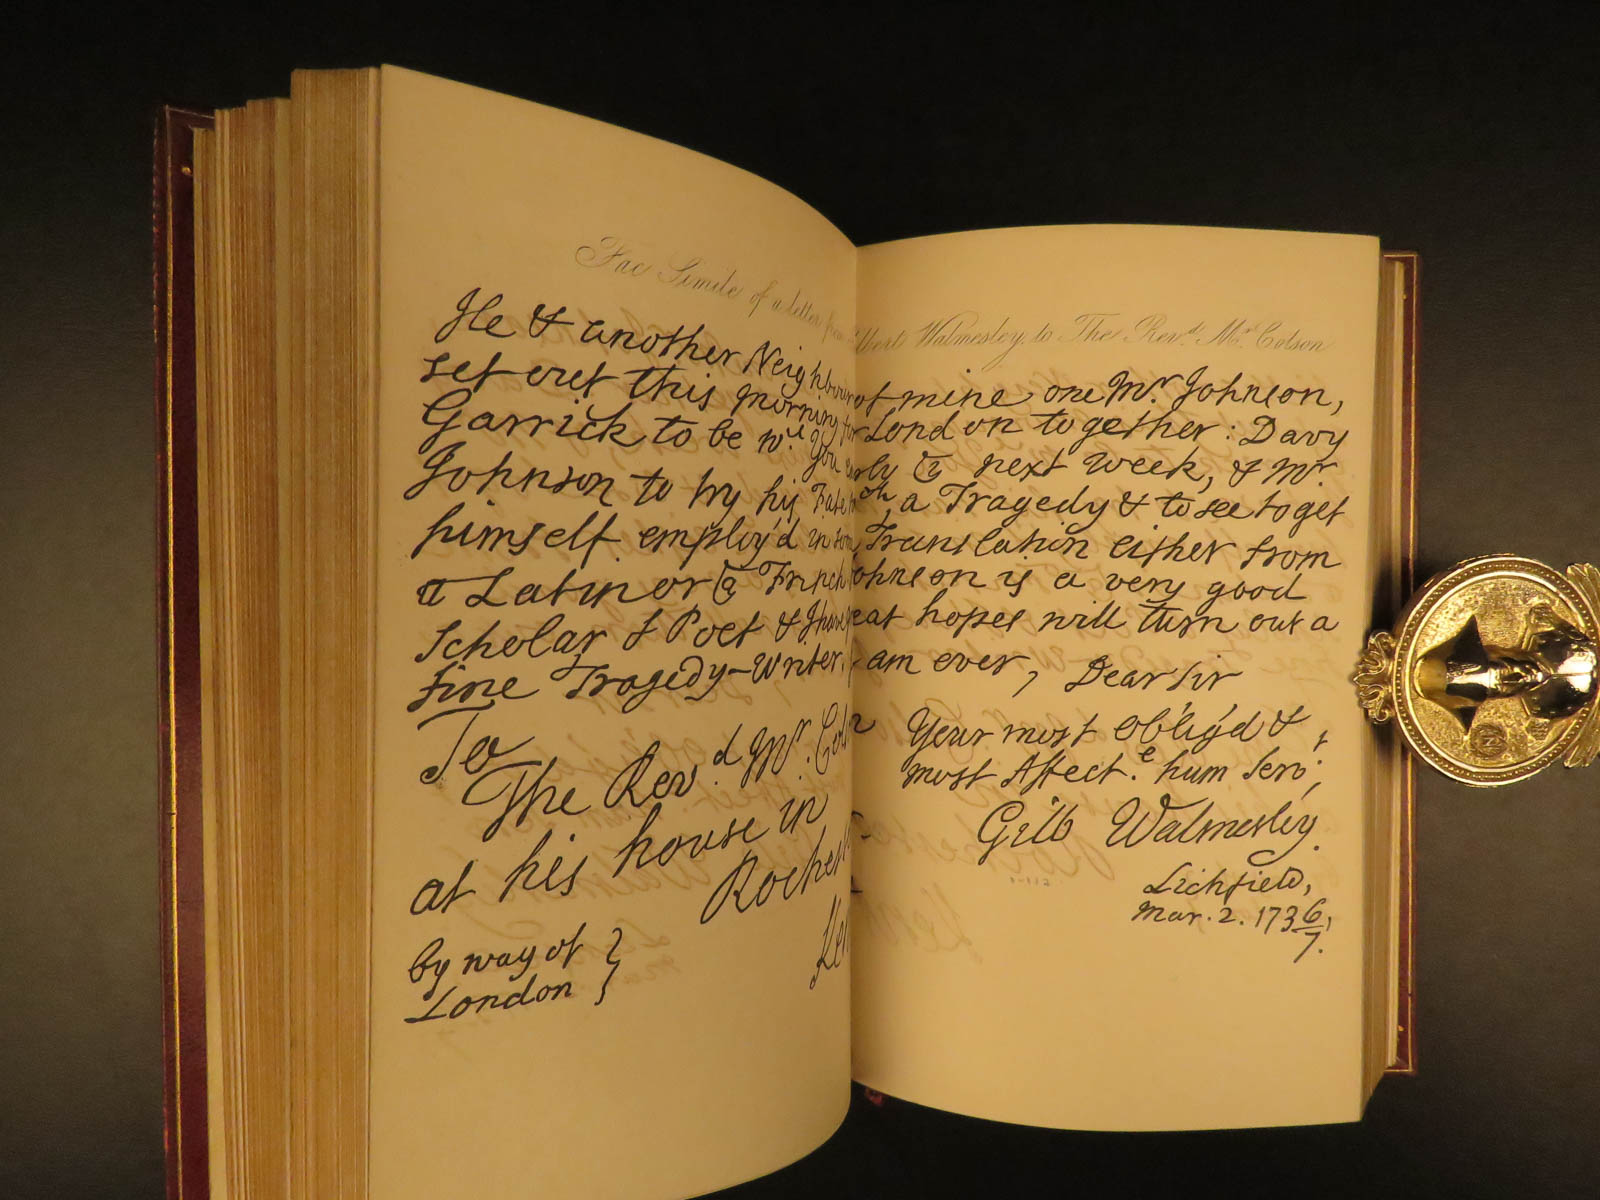 Fac Simile of a letter from Gilbert Walmesley, to The Revd. Mr. Colson
He & another Neighbour of mine one Mr. Johnson,
set out this morning for London together: Davy
Garrick to be wth. you early next week, & Mr.
Johnson to try his Fate wth. a Tragedy & to see to get
himself employ'd in som Translation either from
Latin or French Johnson is a very good
Scholar & Poet & I have great hopes will turn out a
fine Tragedy-Writer. I am ever, Dear Sir
Your most Oblig'd &
most Affect.e hum Serv.t,
Gilb Walmesley.
Lichfield,
Mar. 2. 1736/7.
To
The Revd. Mr. Colson
at his house in
Rochest
Ken
by way of
London }